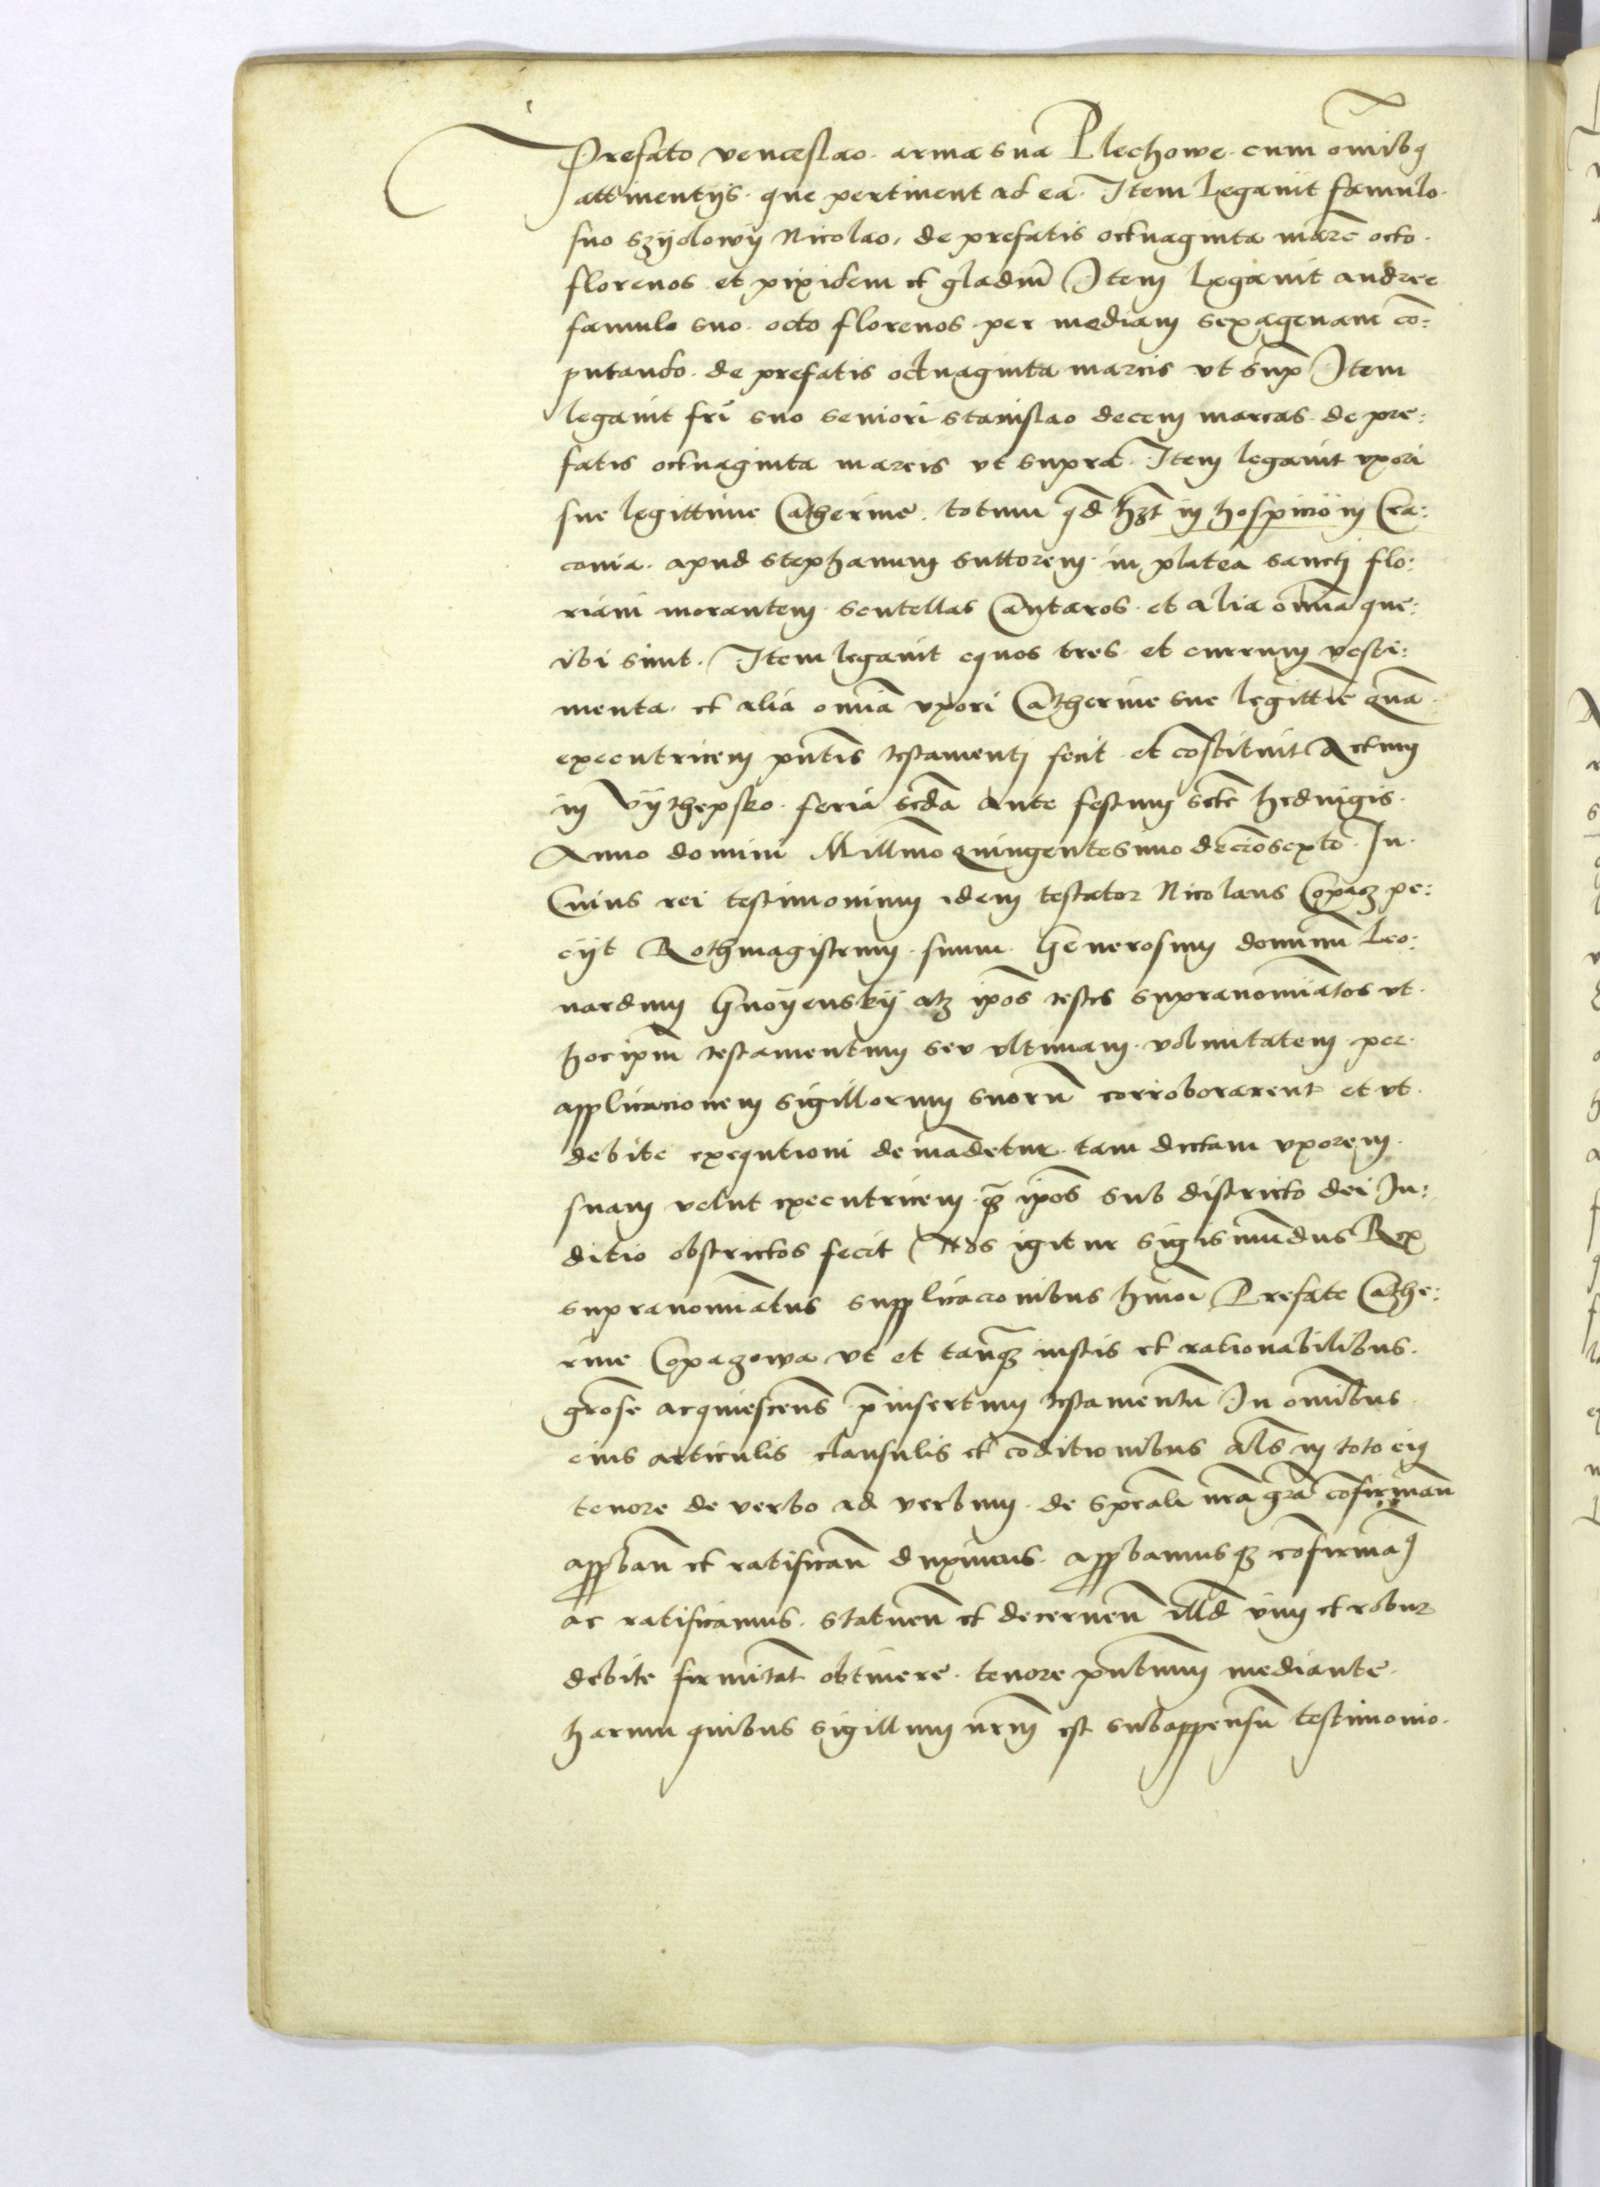 Prefato venceslao. arma sua Plechowe. cum omībꝫ
attinentijs. que pertinent ad ea. Item Legauit famulo.
suo szijdlowij Nicolao, de prefatis octuaginta marc̄ octo.
florenos. et pixidem et gladiū Item Legauit andree
famulo suo. octo florenos. per mediam sexagenam cō:
putando. de prefatis octuaginta marcis vt supͣ Item
legauit frī suo seniori stanislao decem marcas. de pre:
fatis octuaginta marcis vt supra. Item legauit vxori
sue legittime Catherine. totum qd̄ hꝫt in hospicio in Cra:
couia. apud stephanum suttorem. in platea sancti flo:
riani morantem. scutellas Cantaros. et alia om̄ia que:
ibi sunt. Item legauit equos tres. et currum vesti:
menta. et alia om̄ia vxori Catherine sue legittīe quā
executricem pn̄tis testamenti fecit. et cōstituit Actum
in Vijthepsko. feria sc̄da ante festum sc̄te hedvigis.
Anno domini Mill̄mo quingentesimo decīosexto. In.
Cuius rei testimonium idem testator Nicolaus Copacz pe:
cijt Rothmagistrum. suum. Generosum dominū Leo:
nardum Gnoijenskij atqꝫ ip̄os testes supranomīatos vt.
hoc ip̄m testamentum seu vltimam. voluntatem. per.
applicacionem sigillorum suorū corroborarent et vt.
debite exequtioni demādetur. tam dictam vxorem.
suam velut executricem. qͣꝫ ip̄os sub districto dei Iu:
ditio obstrictos fecit Nos igitur sigismūdus Rex
supranomīatus supplicacionibus hm̄oi Prefate Cathe:
rine Copaczowa vt et tanqͣꝫ iustis et rationabilibus.
gr̄ose acquiescens p̄insertum testamentū In omībus.
eius articulis clausulis et cōditionibus al̄s in toto eiꝰ
tenore de verbo ad verbum. de spēali nr̄a gr̄a cōfirman̄
approban̄ et ratifican̄ duximus. approbamusqꝫ cōfirmaꝰ
ac ratificamus. statuen̄ et decernen̄ ill̄d vim et robur
debite firmitat̄ obtinere. tenore pn̄tium mediante.
harum quibus sigillum nr̄m est subappensū testimonio.